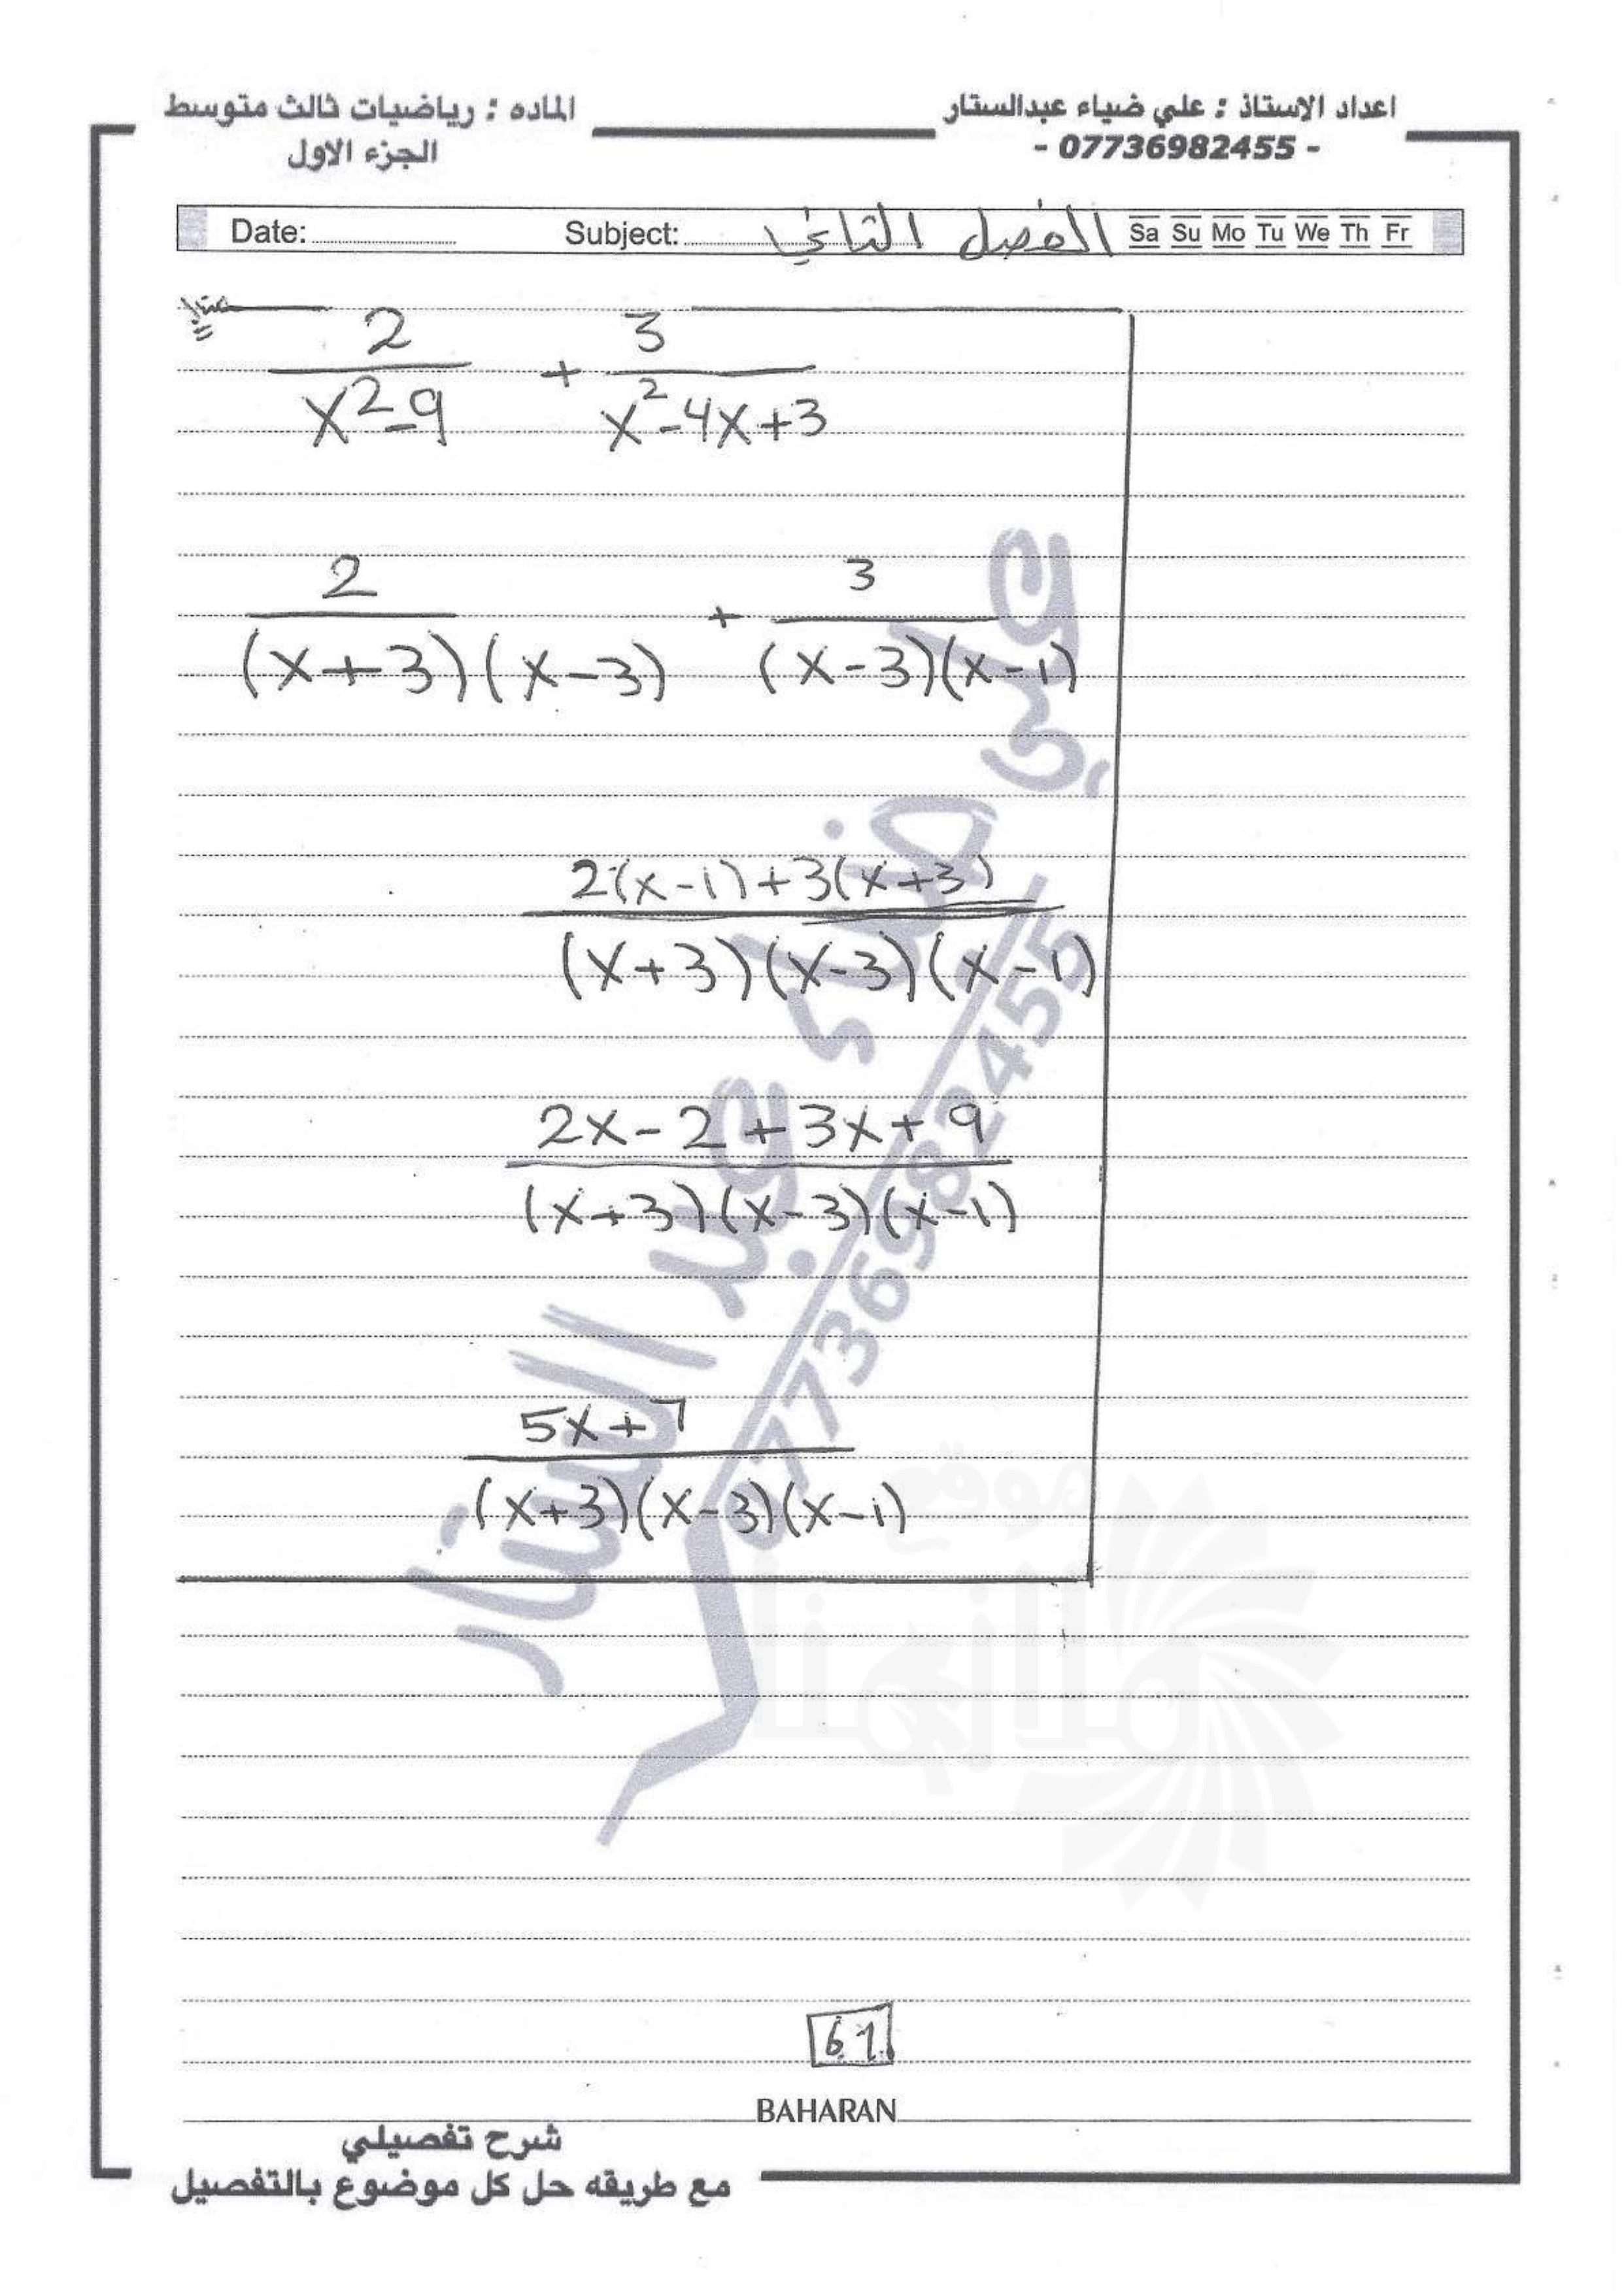 اعداد الاستاذ : علي ضياء عبدالستار
- 07736982455 -
الماده : رياضيات ثالث متوسط
الجزء الاول
Date: Subject: الفصل الثاني Sa Su Mo Tu We Th Fr
مثال
2/(x²-9) + 3/(x²-4x+3)
2/((x+3)(x-3)) + 3/((x-3)(x-1))
(2(x-1)+3(x+3))/((x+3)(x-3)(x-1))
(2x-2+3x+9)/((x+3)(x-3)(x-1))
(5x+7)/((x+3)(x-3)(x-1))
علي ضياء عبد الستار
07736982455
موقع
ملازمنا
61
BAHARAN
شرح تفصيلي
مع طريقه حل كل موضوع بالتفصيل